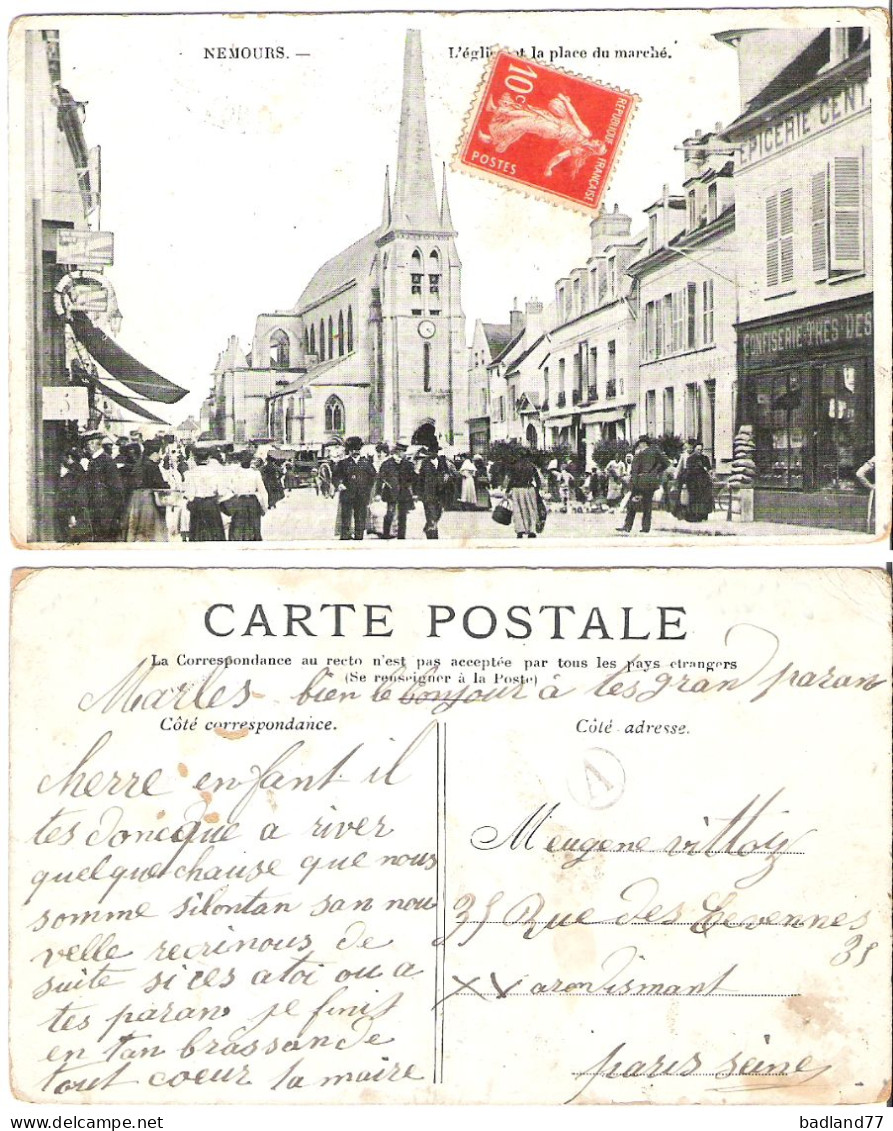 NEMOURS. —
L'église et la place du marché.
10 c.
POSTES
RÉPUBLIQUE FRANÇAISE
EPICERIE CENT
CONFISERIE THES DES
CARTE POSTALE
La Correspondance au recto n'est pas acceptée par tous les pays etrangers
(Se renseigner à la Poste)
Marles bien le bonjour à tes gran paran
Côté correspondance.
Côté adresse.
cherre enfant il
tes donc que a river
quelque chause que nous
somme silontan san nou
velle recrinous de
suite si ces a toi ou a
tes paran je finit
en tan brassan de
tout coeur ta maire
A
M eugene
35 Rue des Cevennes
35
XV arondismant
paris seine
badland77